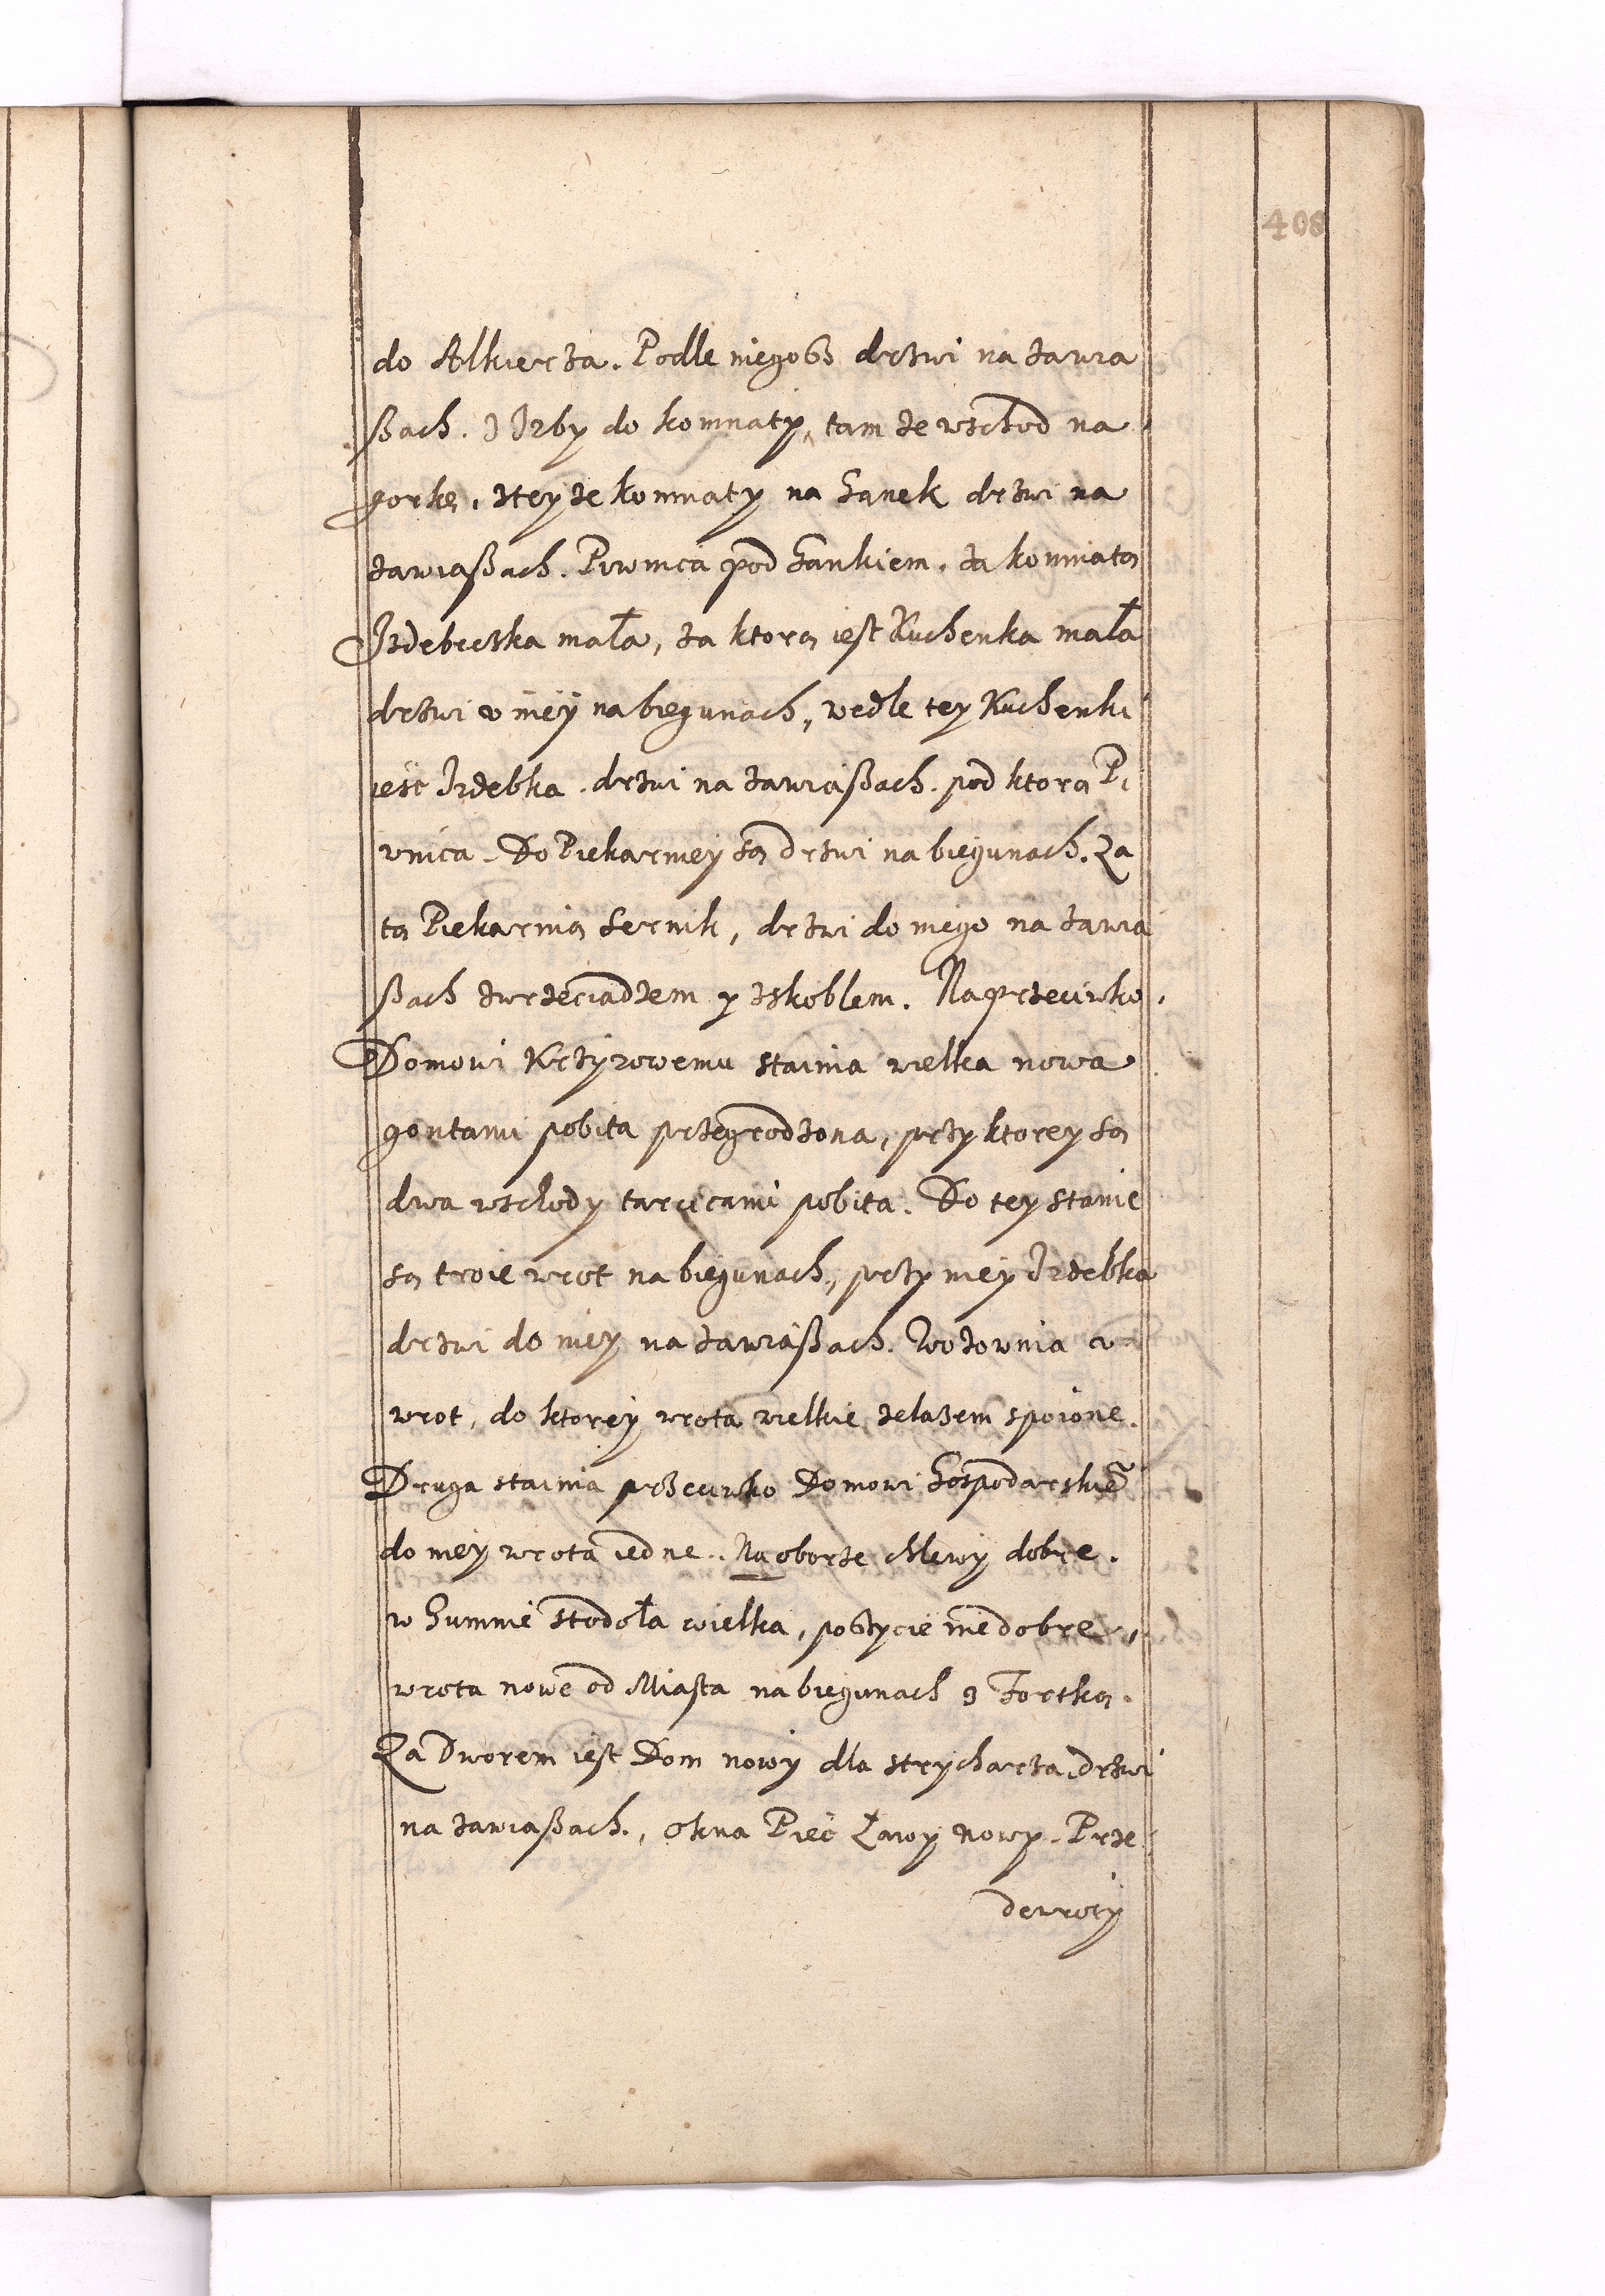 408
do Alkierza. Podle niegosz drzwi na zawia
ßach. Z Izby do komnaty, tam ze wschod na
gorkę. z tey ze komnaty na Ganek drzwi na
zawiaßach. Piwnica pod Gankiem. za komnatą
Izdebeczka mała, za ktorą iest Kuchenka mała
drzwi v niey na biegunach, wedle tey Kuchenki
iest Izdebka. drzwi na zawiaßach. pod ktorą Pi
wnica. Do Piekarniey są drzwi na biegunach. Za
tą Piekarnią Sernik, drzwi do niego na zawia
ßach z wrzeciądzem y z skoblem. Naprzeciwko
Domowi Krzyzowemu stainia wielka nowa
gontami pobita przegrodzona, przy ktorey są
dwa wschody tarcicami pobita. Do tey stanie
są troie wrot na biegunach, przy niey Izdebka
drzwi do niey na zawiaßach. Wozownia v
wrot, do ktorey wrota wielkie zelazem spoione.
Druga stainia przeciwko Domowi Gospodarskie~
do niey wrota iedne. Na oborze chlewy dobre.
w Gumnie stodoła wielka, poszycie nie dobre,
wrota nowe od Miasta na biegunach z Fortką.
Za Dworem iest Dom nowy dla strycharza, drzwi
na zawiaßach, okna Piec Ławy nowy. Prze
dewroty